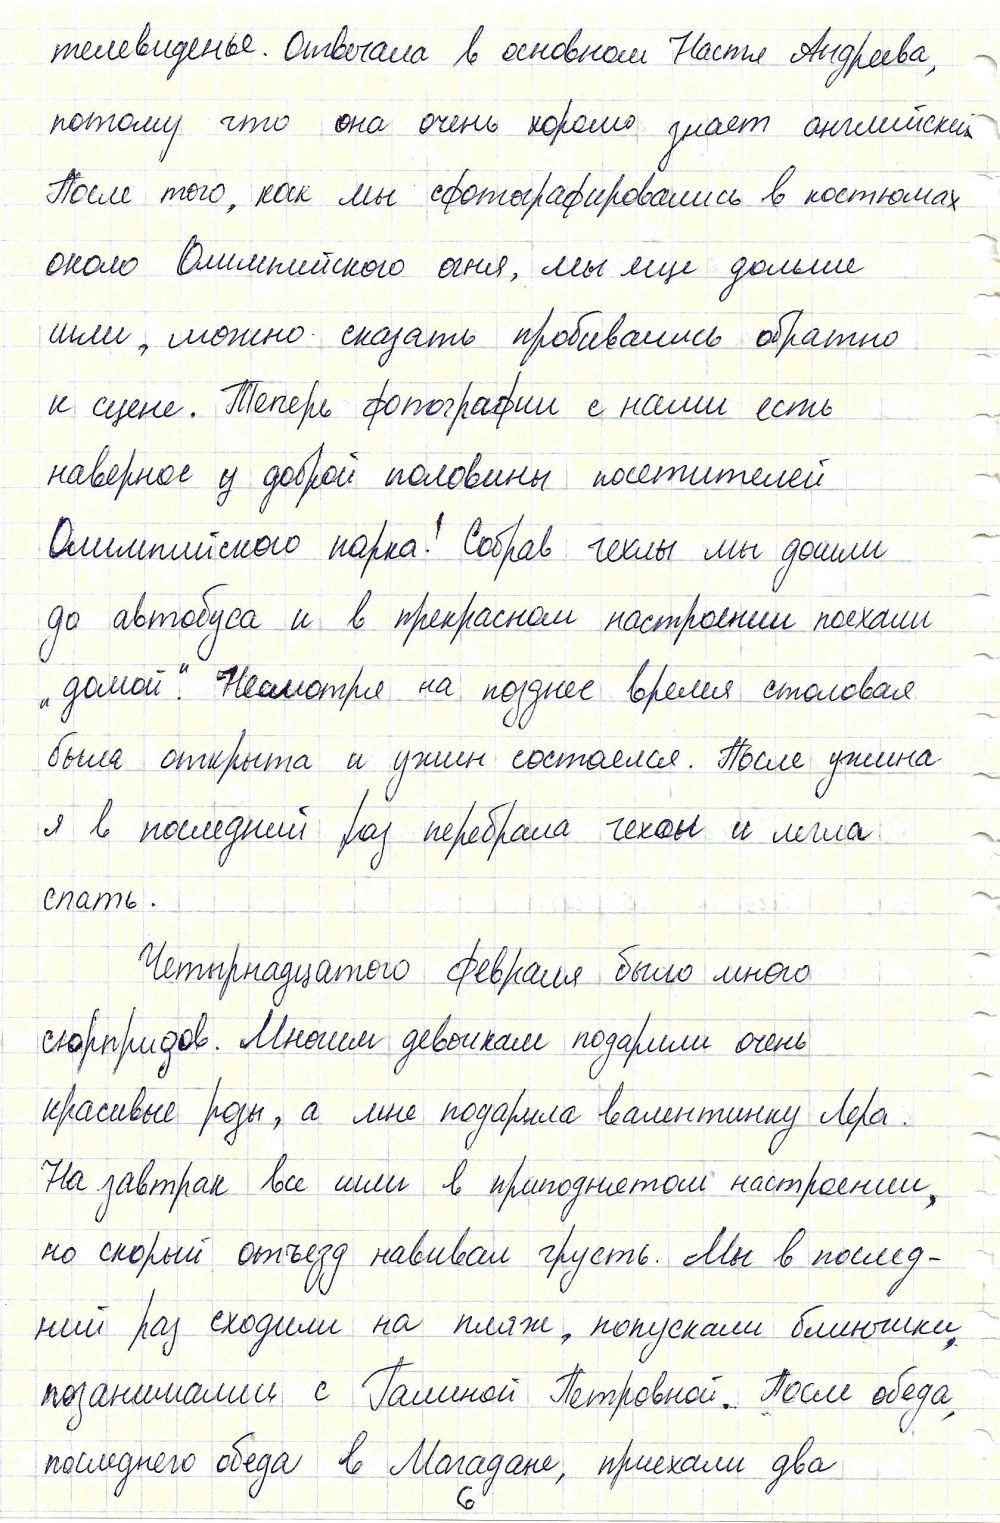 телевиденье. Отвечала в основном Настя Андреева,
потому что она очень хорошо знает английский
После того, как мы сфотографировались в костюмах
около Олимпийского огня, мы еще дольше
шли, можно сказать пробивались обратно
к сцене. Теперь фотографии с нами есть
наверное у доброй половины посетителей
Олимпийского парка! Собрав чехлы мы дошли
до автобуса и в прекрасном настроении поехали
„домой". Несмотря на позднее время столовая
была открыта и ужин состоялся. После ужина
я в последний раз перебрала чехлы и легла
спать.
Четырнадцатого февраля было много
сюрпризов. Многим девочкам подарили очень
красивые розы, а мне подарила валентинку Лера.
На завтрак все шли в приподнятом настроении,
но скорый отъезд навивал грусть. Мы в послед-
ний раз сходили на пляж, попускали блинчики,
позанимались с Галиной Петровной. После обеда,
последнего обеда в Магадане, приехали два
6